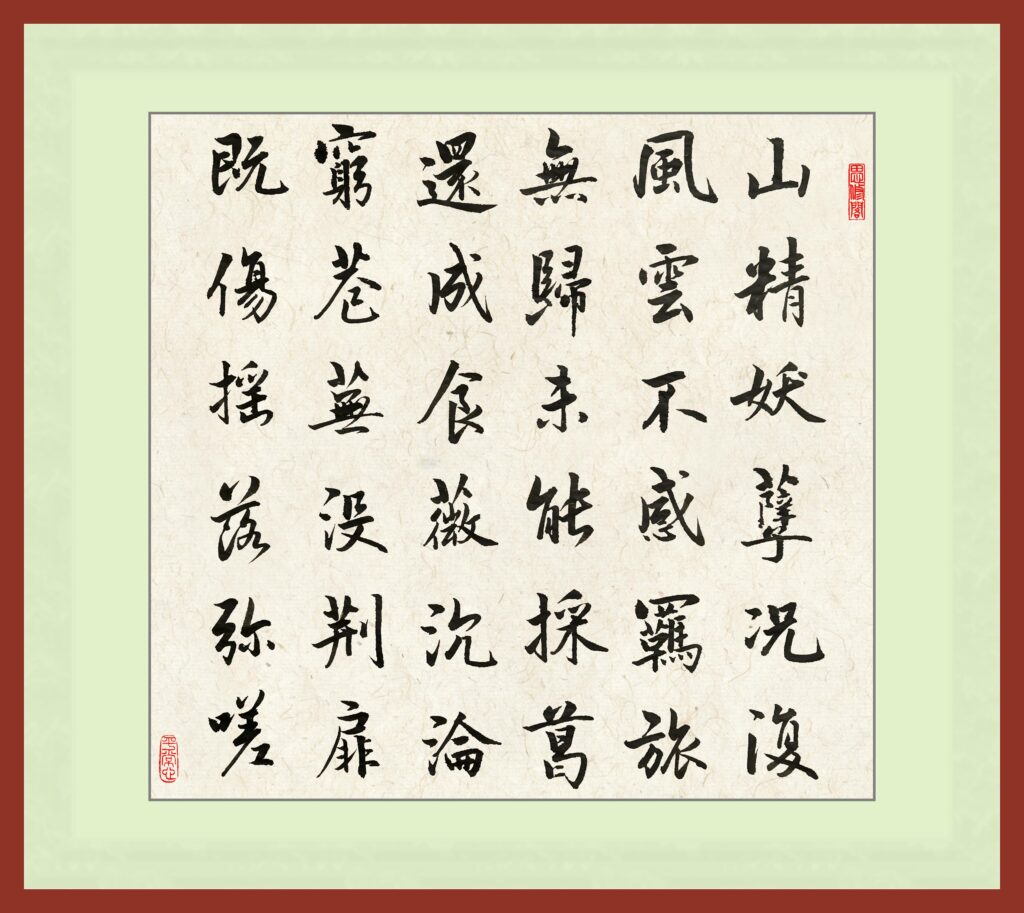 山精妖孽况復
風雲不感羈旅
無歸未能採葛
還成食薇沉淪
窮巷蕪没荆扉
既傷摇落弥嗟